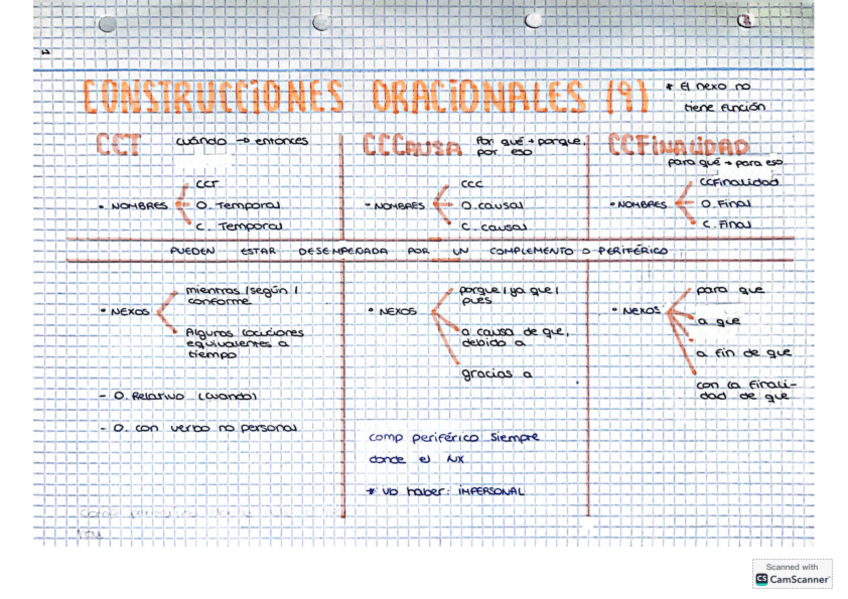 CONSTRUCCIONES ORACIONALES (9)
* El nexo no
tiene función
CCT
cuándo → entonces
• NOMBRES
CCT
O. Temporal
C. Temporal
CCCAUSA
Por qué → porque,
por eso
• NOMBRES
CCC
O. causal
C. causal
CCFINALIDAD
para qué → para eso
• NOMBRES
CCFinalidad
O. Final
C. Final
PUEDEN ESTAR DESEMPEÑADA POR UN COMPLEMENTO O PERIFÉRICO
• NEXOS
mientras / según /
conforme
Algunas locuciones
equivalentes a
tiempo
- O. Relativo (cuando)
- O. con verbo no personal
• NEXOS
porque / ya que /
pues
a causa de que,
debido a
gracias a
comp periférico siempre
donde el NX
* vb haber: IMPERSONAL
• NEXOS
para que
a que
a fin de que
con la finali-
dad de que
Scanned with
CS CamScanner